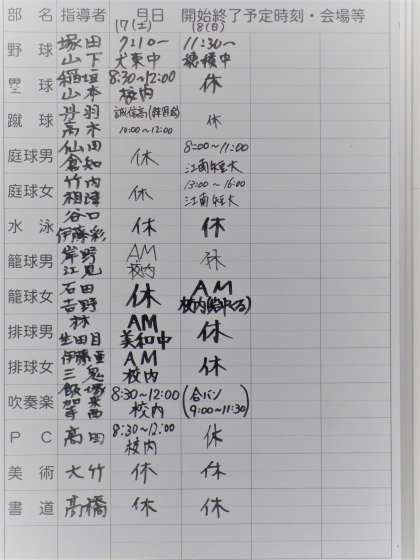 部 名 指導者 月日 開始終了予定時刻・会場等
17(土) 18(日)
野 球 塚田 7:10〜 11:30〜
山下 犬東中 穂積中
塁 球 稲垣 8:30〜12:00 休
山本 校内
蹴 球 丹羽 誠信高(練習試合) 休
高木 10:00〜12:00
庭球男 仙田 休 8:00〜11:00
倉知 江南短大
庭球女 竹内 休 13:00〜16:00
相澤 江南短大
水 泳 谷口 休 休
伊藤彩
籠球男 岸野 AM 休
江見 校内
籠球女 石田 休 AM
吉野 校内
排球男 林 AM 休
生田目 美和中
排球女 AM 休
三鬼 校内
吹奏楽 飯塚 8:30〜12:00 合バン
校内 9:00〜11:30
P C 高田 8:30〜12:00 休
校内
美 術 大竹 休 休
書 道 高橋 休 休